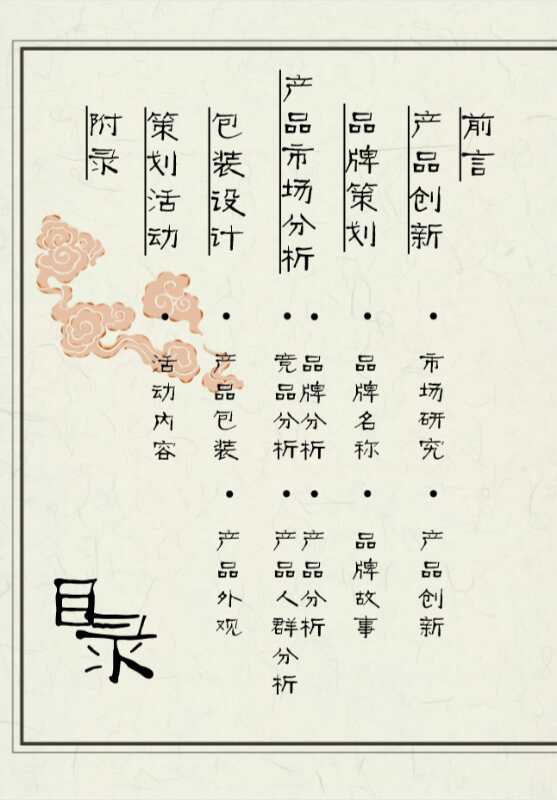 前言
产品创新
• 市场研究
• 产品创新
品牌策划
• 品牌名称
• 品牌故事
产品市场分析
• 品牌分析
• 产品分析
• 竞品分析
• 产品人群分析
包装设计
• 产品包装
• 产品外观
策划活动
• 活动内容
附录
目录